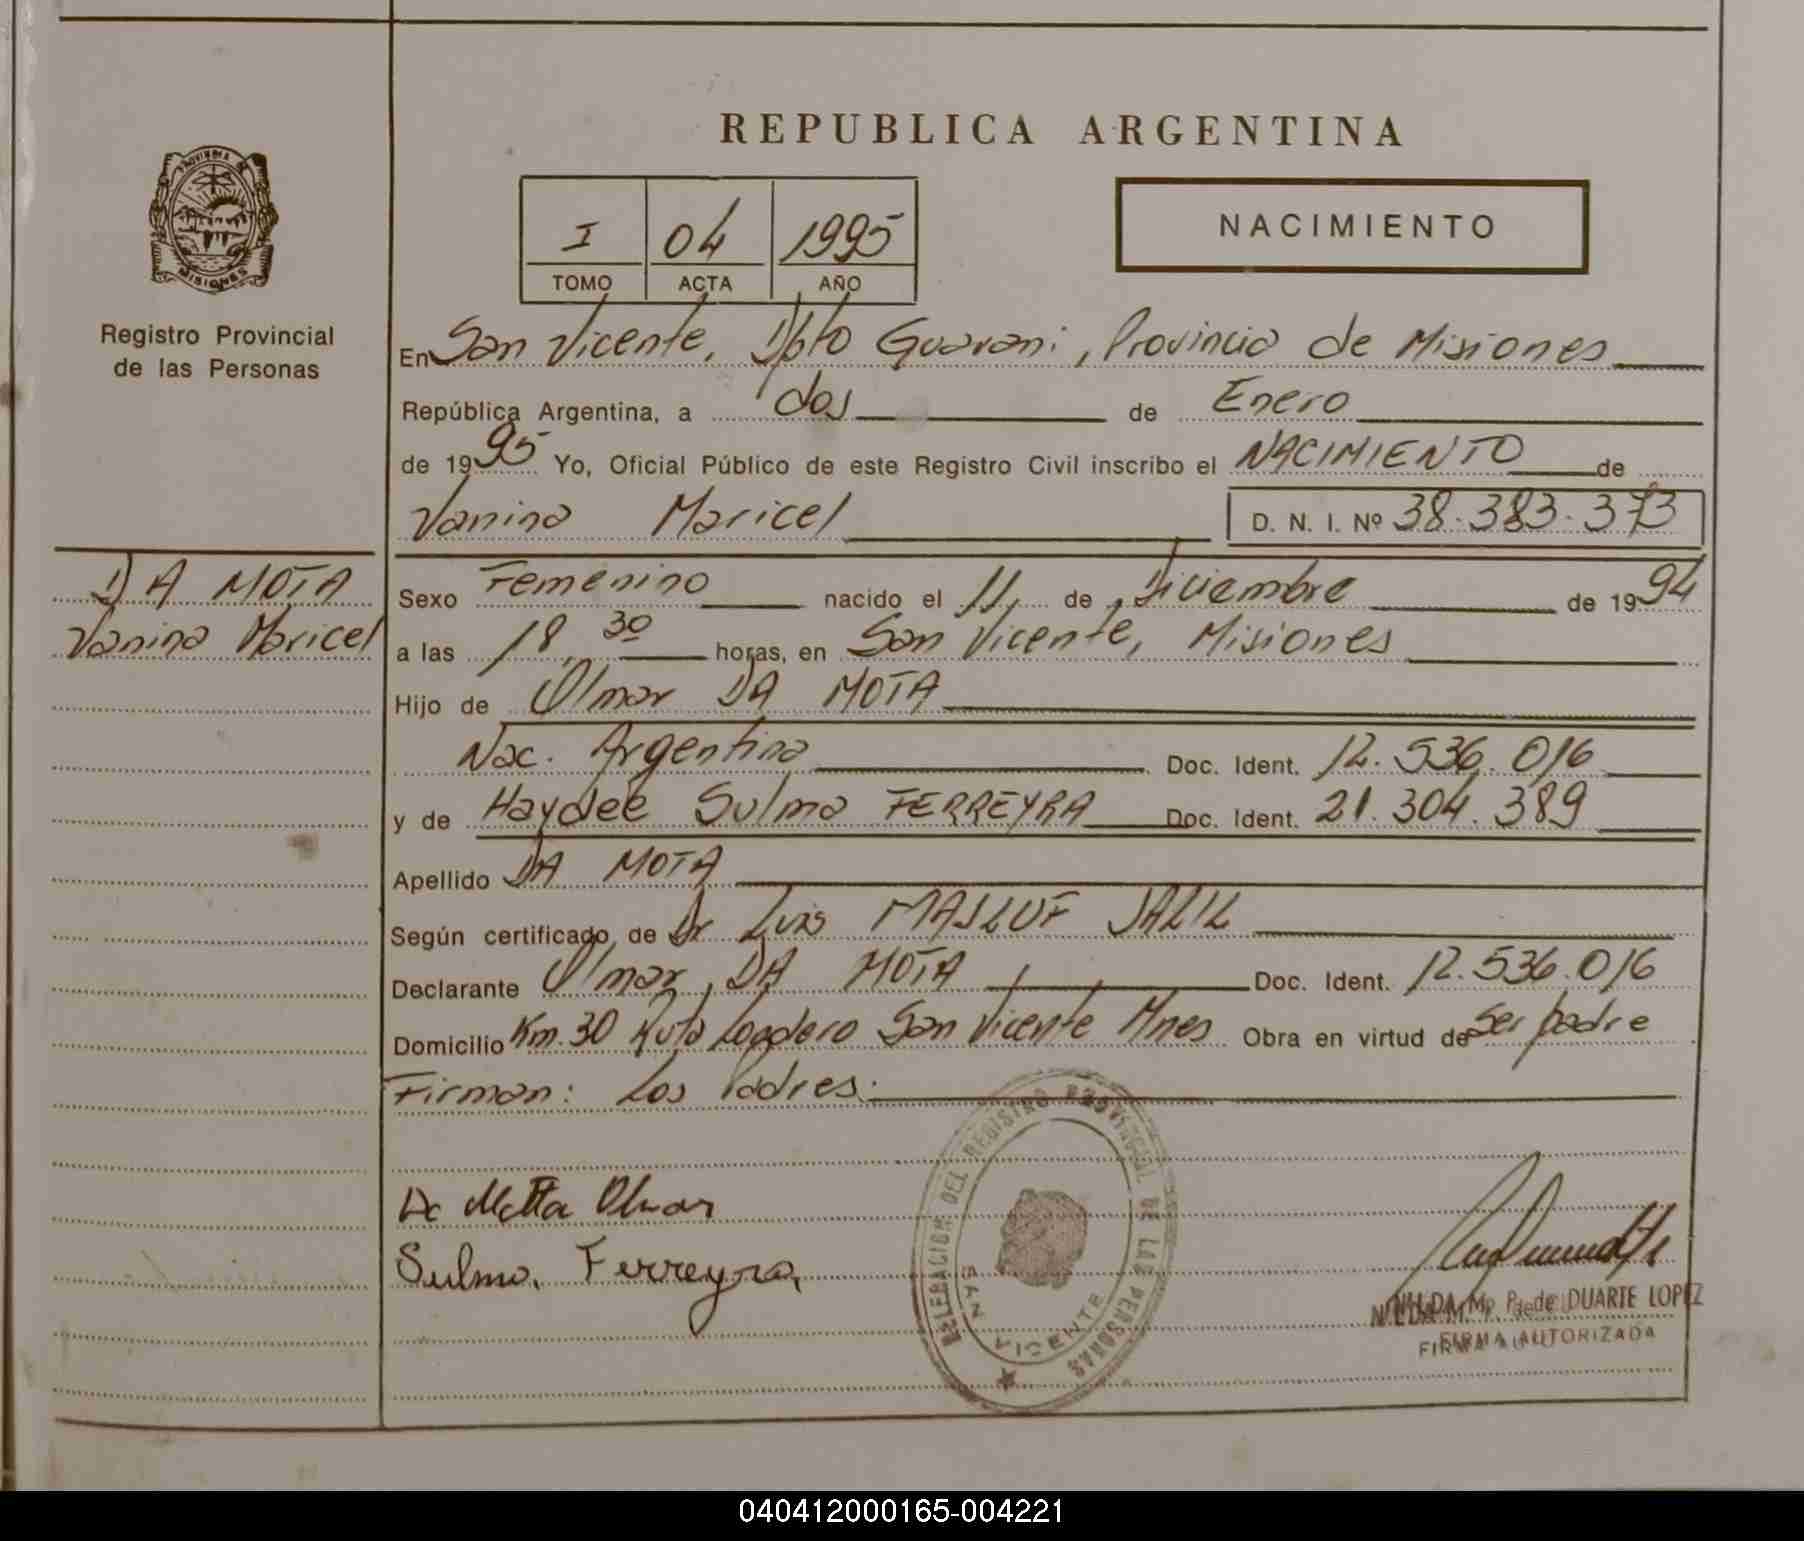 REPUBLICA ARGENTINA
PROVINCIA DE MISIONES
Registro Provincial
de las Personas
I 04 1995
TOMO ACTA AÑO
NACIMIENTO
En San Vicente, Dpto Guarani, Provincia de Misiones
República Argentina, a dos de Enero
de 1995 Yo, Oficial Público de este Registro Civil inscribo el NACIMIENTO de
Vanina Maricel D. N. I. Nº 38.383.373
DA MOTA
Vanina Maricel
Sexo Femenino nacido el 11 de Diciembre de 1994
a las 18,30 horas, en San Vicente, Misiones
Hijo de Olmar DA MOTA
Nac. Argentina Doc. Ident. 12.536.016
y de Haydee Sulma FERREYRA Doc. Ident. 21.304.389
Apellido DA MOTA
Según certificado de Dr Luis MASLUF JALIL
Declarante Olmar DA MOTA Doc. Ident. 12.536.016
Domicilio Km. 30 Ruta San Vicente Mnes Obra en virtud de Ser padre
Firman: Los Padres.
Da Motta Olmar
Sulma Ferreyra
DELEGACION DEL REGISTRO PROVINCIAL DE LAS PERSONAS
SAN VICENTE
NILDA Mª P. de DUARTE LOPEZ
FIRMA AUTORIZADA
040412000165-004221